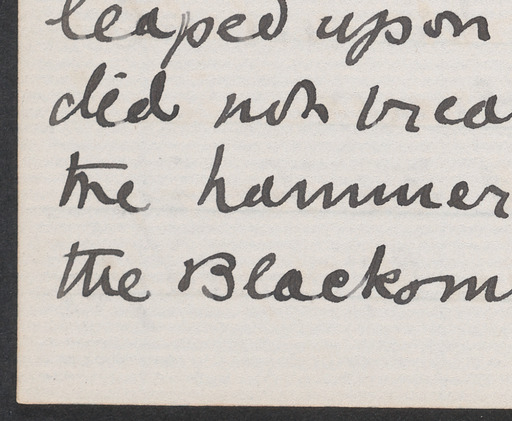 leaped upon
did not brea
the hammer
the Blackom